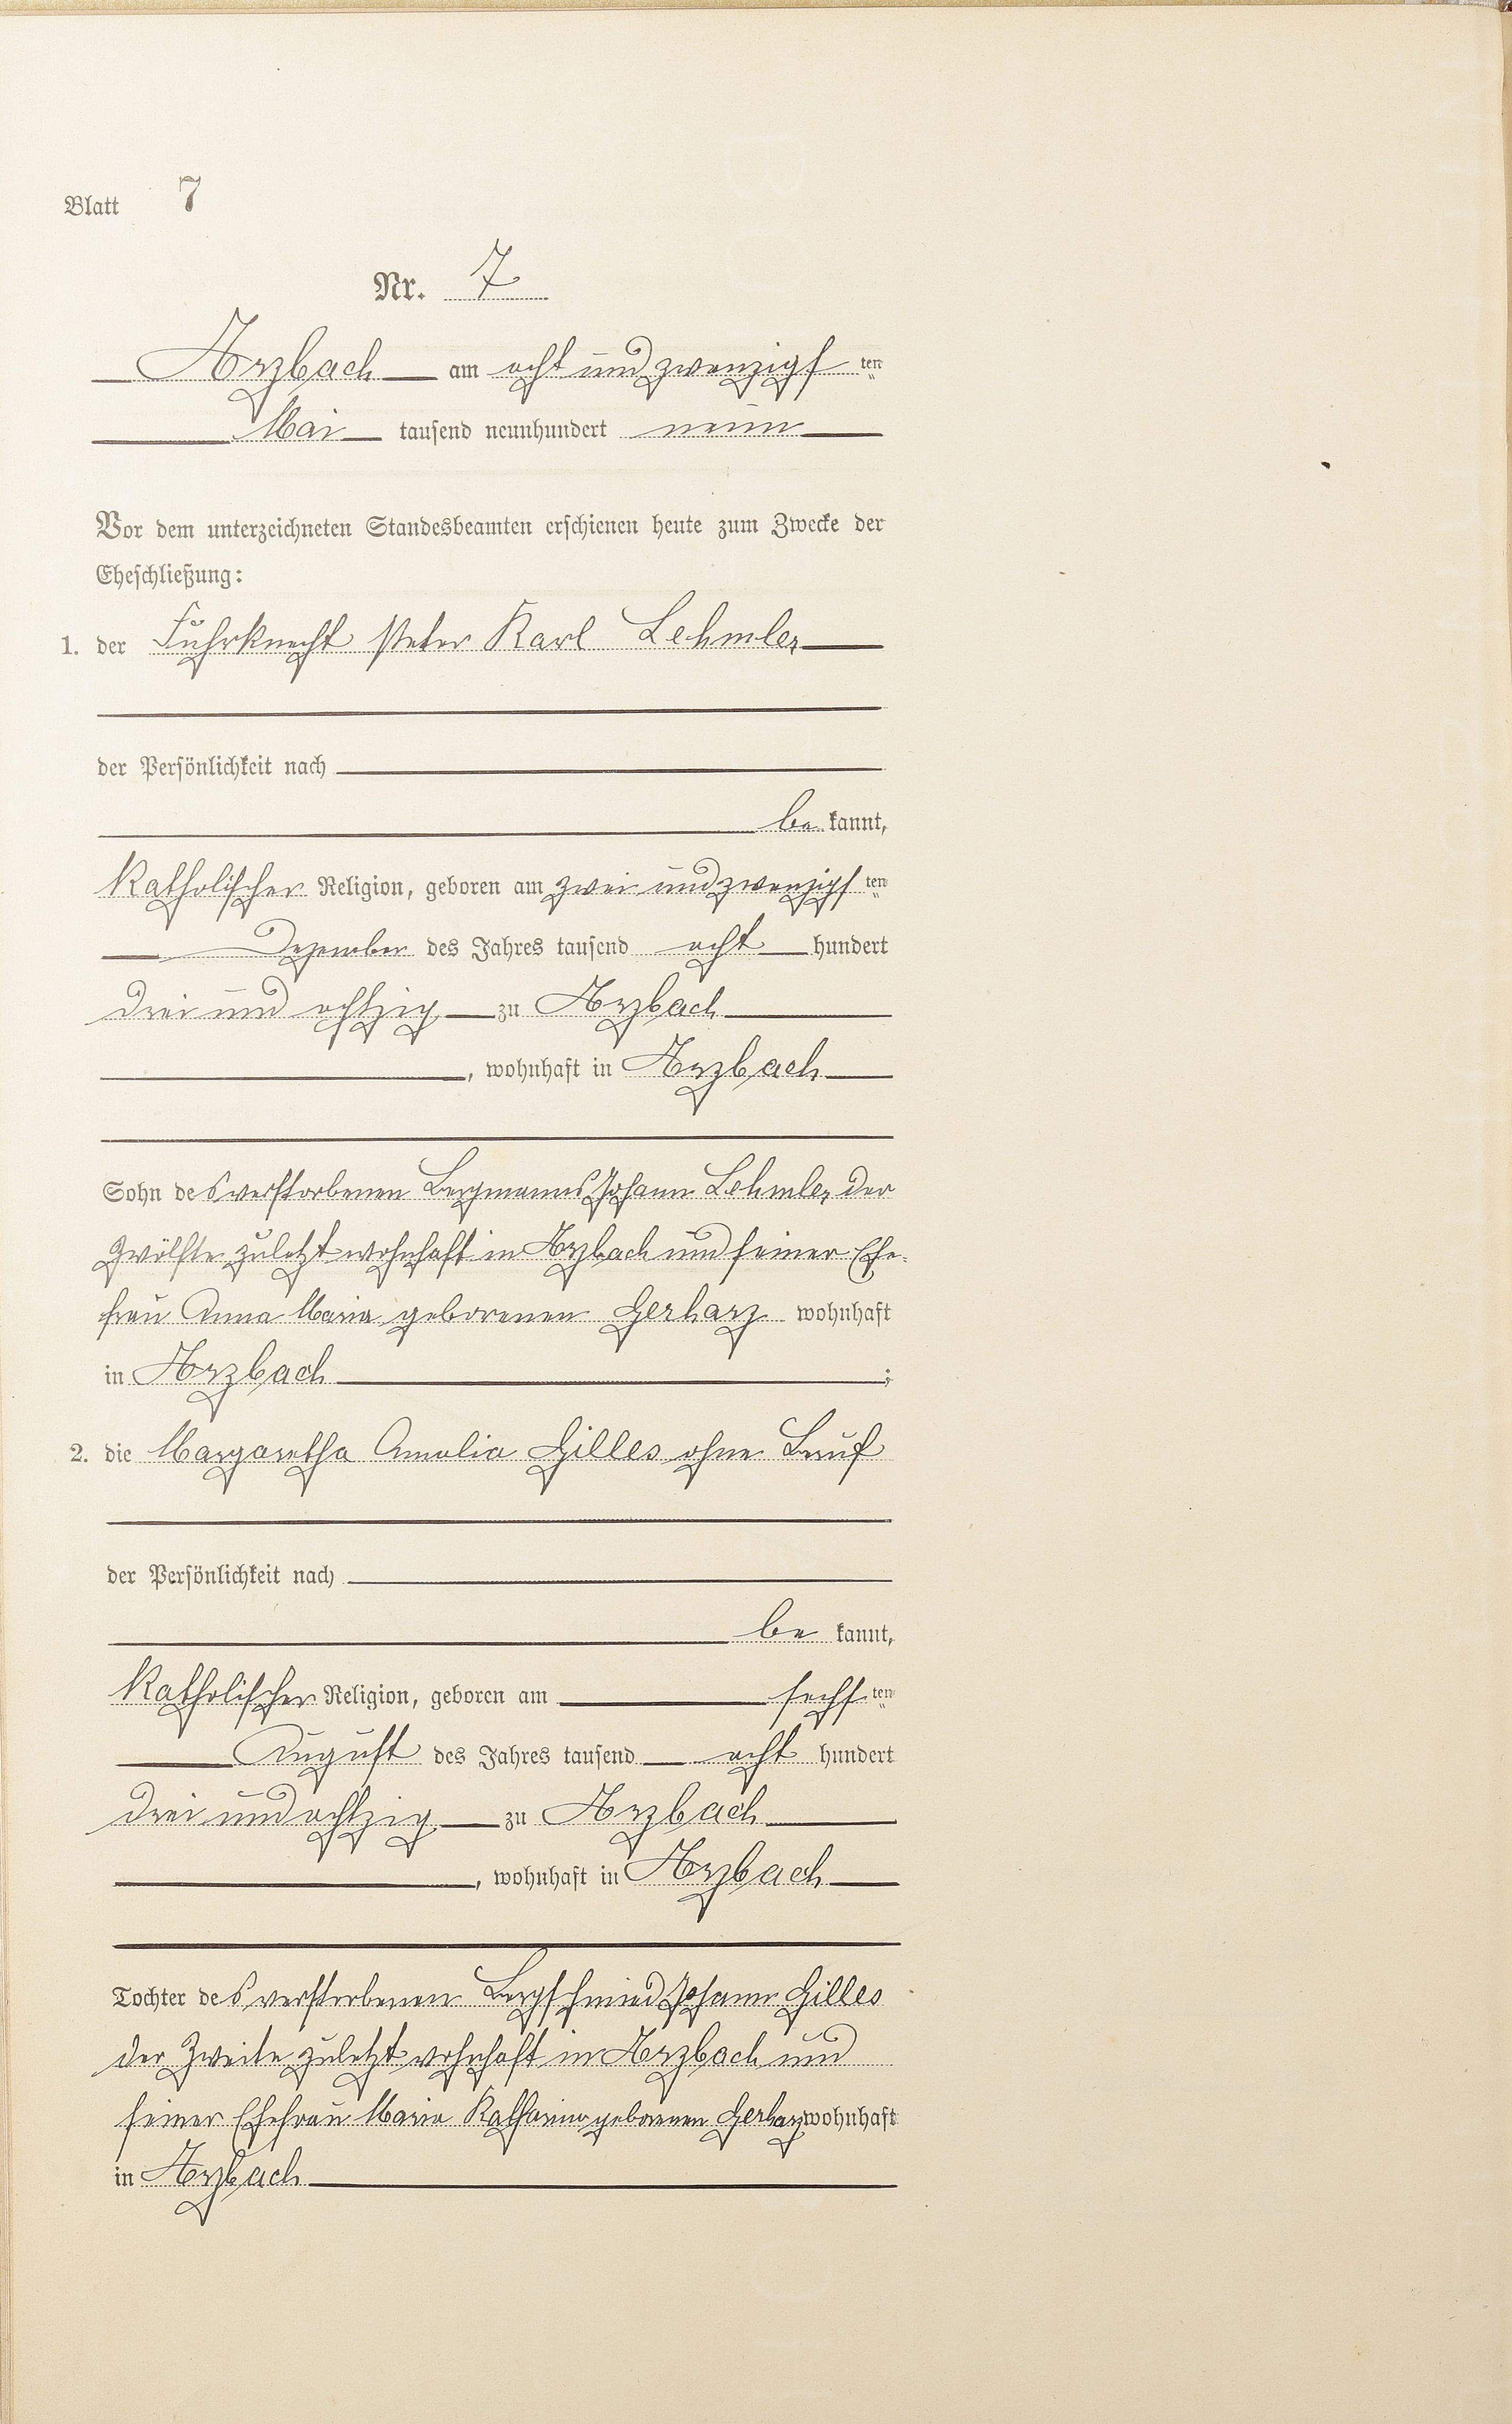 Blatt 7
Nr. 7
Arzbach am acht und zwanzigs ten
Mai tausend neunhundert neun
Vor dem unterzeichneten Standesbeamten erschienen heute zum Zwecke der
Eheschließung:
1. der Fuhrknecht Peter Karl Lehmler
der Persönlichkeit nach
be kannt,
katholischer Religion, geboren am zwei und zwanzigs ten
Dezember des Jahres tausend acht hundert
drei und achtzig zu Arzbach
, wohnhaft in Arzbach
Sohn des verstorbenen Bergmanns Johann Lehmler der
Zwölfte zuletzt wohnhaft in Arzbach und seiner Ehe-
frau Anna Maria geborenen Gerharz wohnhaft
in Arzbach ;
2. die Margaretha Amalia Gilles ohne Beruf
der Persönlichkeit nach
be kannt,
katholischer Religion, geboren am sechs ten
August des Jahres tausend acht hundert
drei und achtzig zu Arzbach
, wohnhaft in Arzbach
Tochter des verstorbenen Bergschmied Johann Gilles
der Zweite zuletzt wohnhaft in Arzbach und
seiner Ehefrau Maria Katharina geborenen Gerharz wohnhaft
in Arzbach